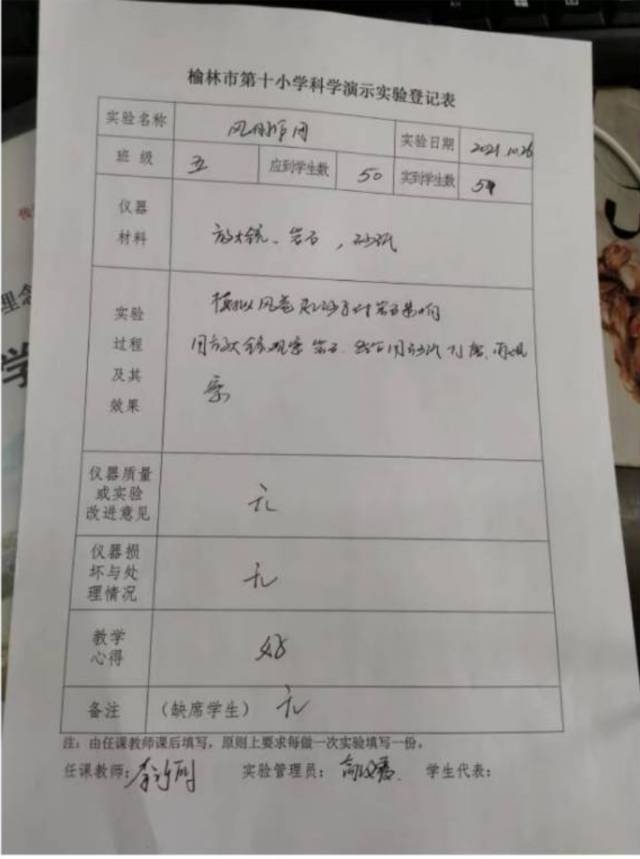 榆林市第十小学科学演示实验登记表
实验名称 风的作用 实验日期 2021.10.26
班级 五 应到学生数 50 实到学生数
仪器材料 放大镜、岩石，砂纸
实验过程及其效果
模拟风 对岩石影响
用放大镜观察岩石. 然后用砂纸打磨,再观
察
仪器质量或实验改进意见 无
仪器损坏与处理情况 无
教学心得 好
备注 (缺席学生) 无
注：由任课教师课后填写，原则上要求每做一次实验填写一份。
任课教师: 实验管理员: 学生代表:
理念
学